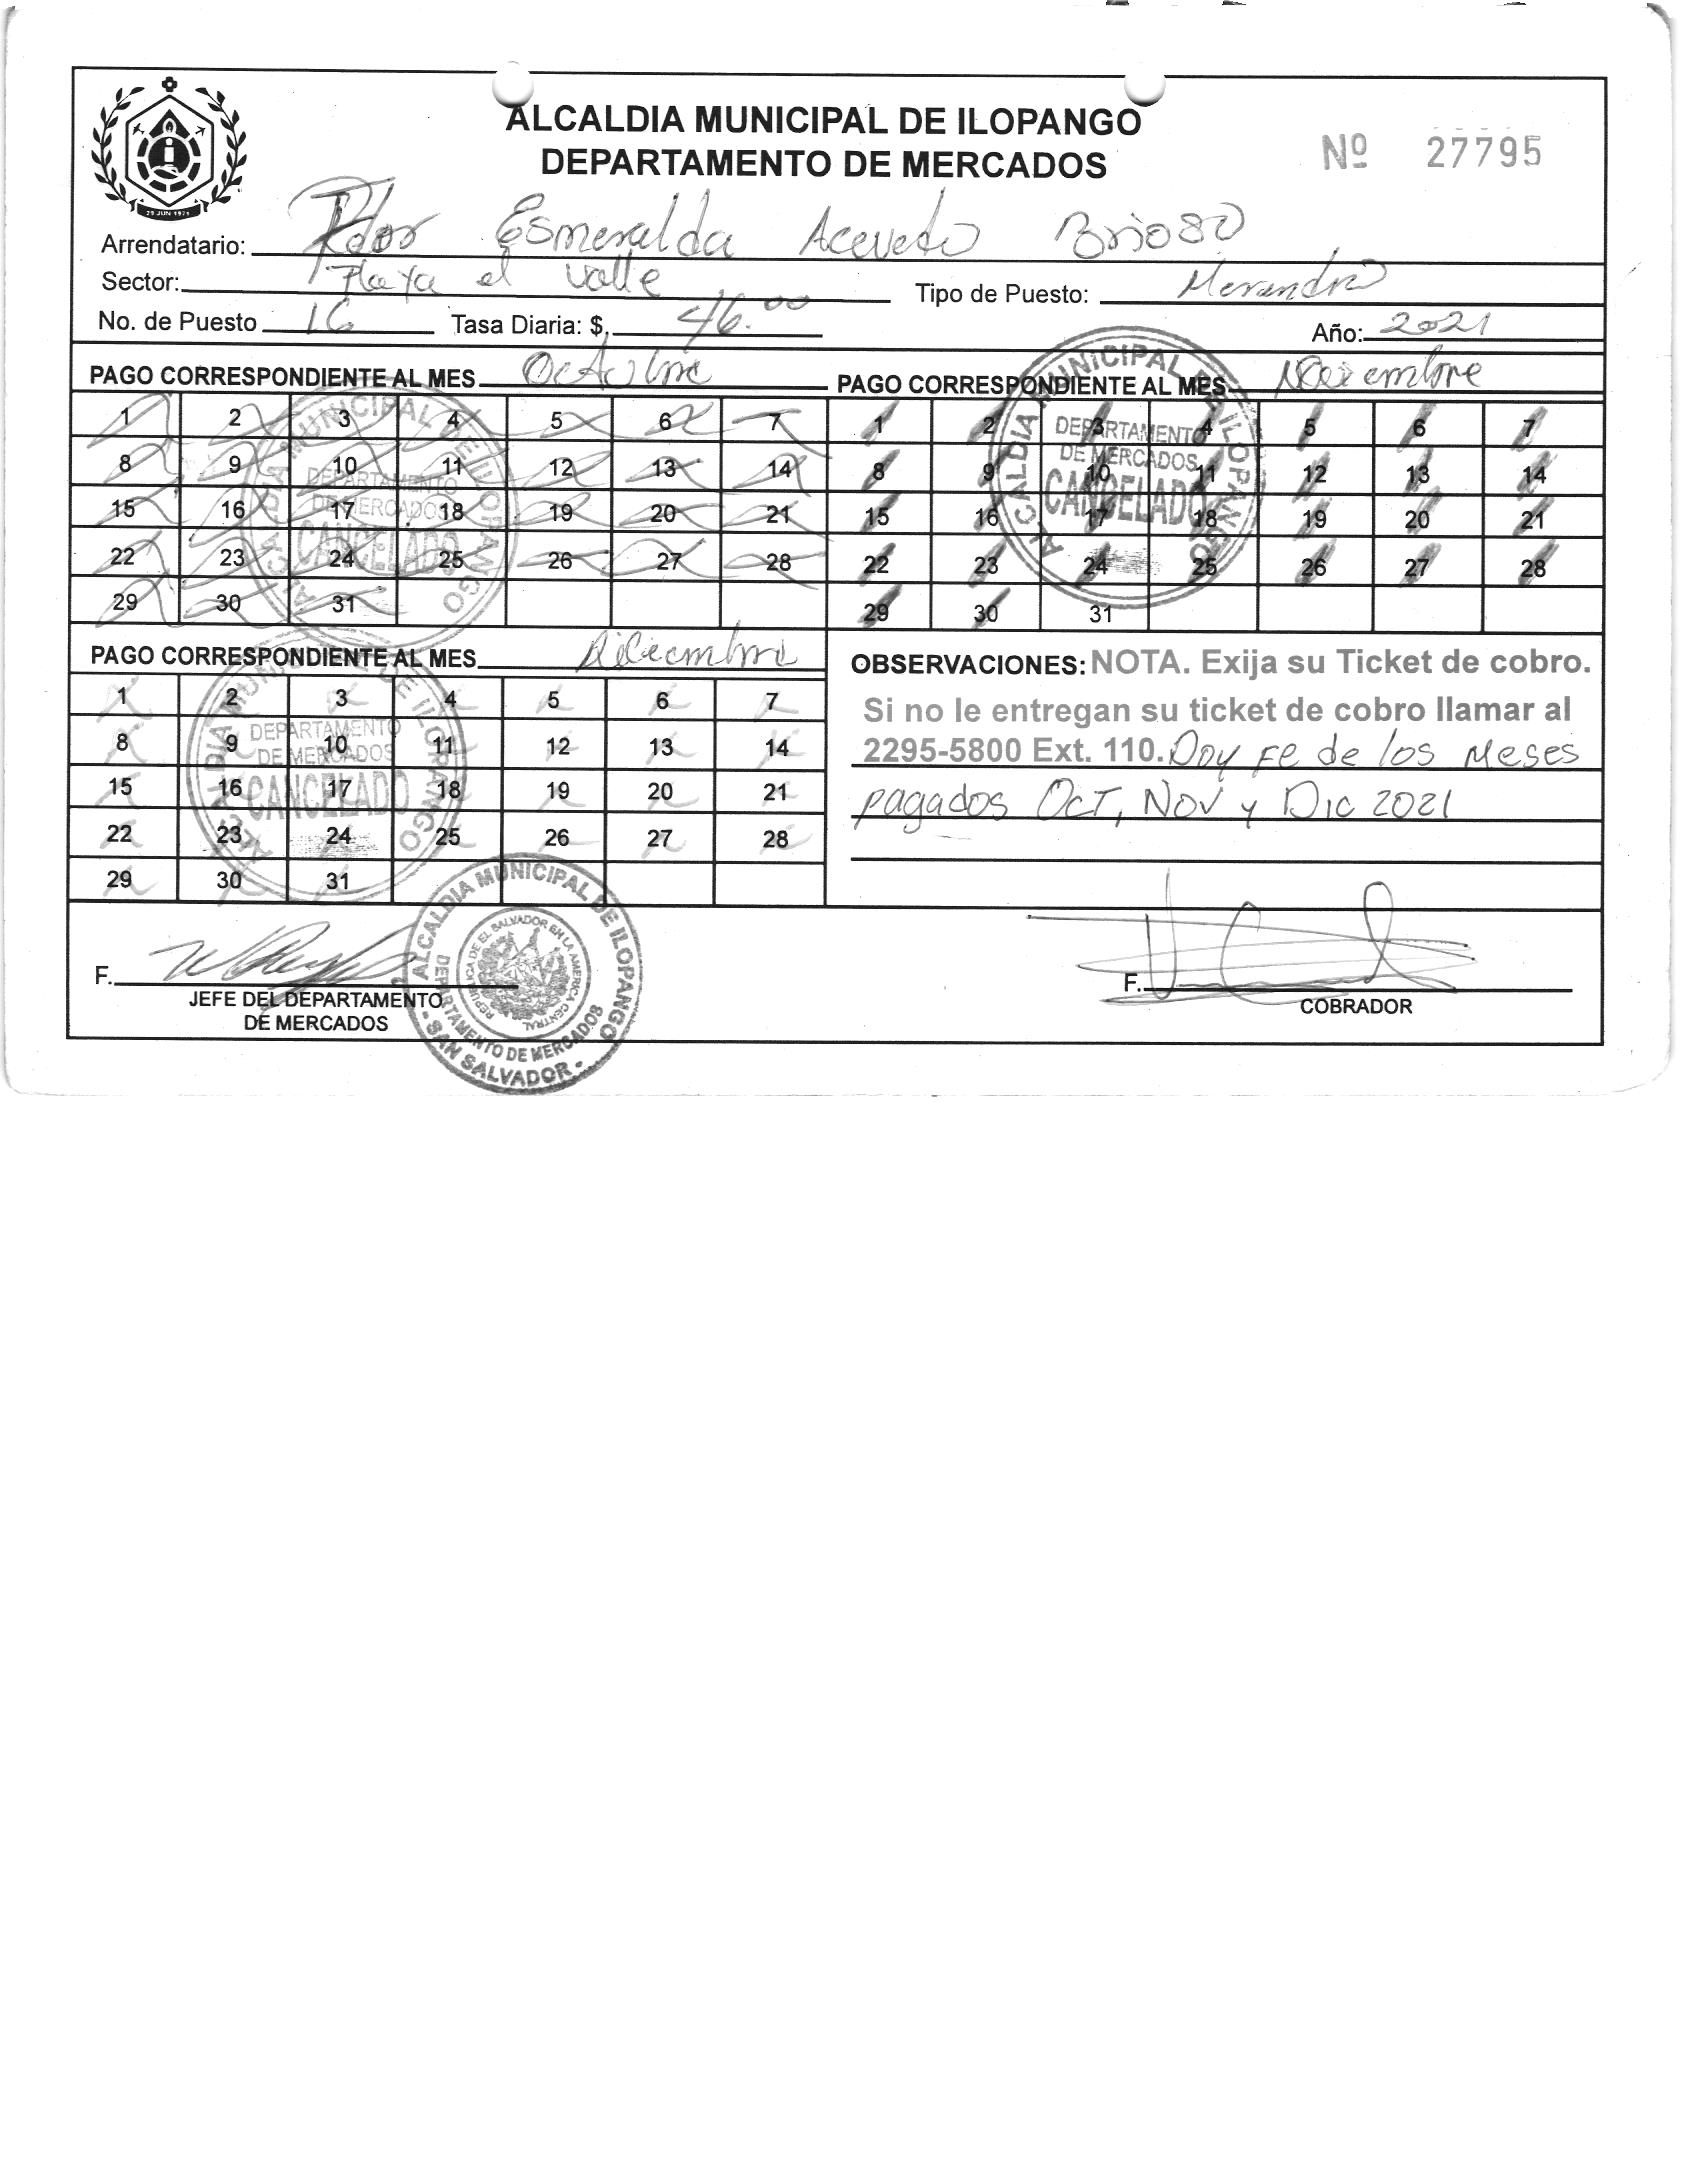 ALCALDIA MUNICIPAL DE ILOPANGO
DEPARTAMENTO DE MERCADOS
Nº 27795
29 JUN 1971
Arrendatario: Esmeralda Acevedo Brioso
Sector: Plaza el Valle
Tipo de Puesto:
No. de Puesto Tasa Diaria: $
Año: 2021
PAGO CORRESPONDIENTE AL MES Octubre
1 2 3 4 5 6 7
8 9 10 11 12 13 14
15 16 17 18 19 20 21
22 23 24 25 26 27 28
29 30 31
ALCALDIA MUNICIPAL DE ILOPANGO
DEPARTAMENTO
DE MERCADOS
CANCELADO
PAGO CORRESPONDIENTE AL MES Noviembre
1 2 3 4 5 6 7
8 9 10 11 12 13 14
15 16 17 18 19 20 21
22 23 24 25 26 27 28
29 30 31
ALCALDIA MUNICIPAL DE ILOPANGO
DEPARTAMENTO
DE MERCADOS
CANCELADO
PAGO CORRESPONDIENTE AL MES Diciembre
1 2 3 4 5 6 7
8 9 10 11 12 13 14
15 16 17 18 19 20 21
22 23 24 25 26 27 28
29 30 31
ALCALDIA MUNICIPAL DE ILOPANGO
DEPARTAMENTO
DE MERCADOS
CANCELADO
OBSERVACIONES: NOTA. Exija su Ticket de cobro.
Si no le entregan su ticket de cobro llamar al
2295-5800 Ext. 110. Doy Fe de los Meses
pagados Oct, Nov y Dic 2021
F.
JEFE DEL DEPARTAMENTO
DE MERCADOS
ALCALDIA MUNICIPAL DE ILOPANGO
DEPARTAMENTO DE MERCADOS
- SAN SALVADOR -
REPUBLICA DE EL SALVADOR EN LA AMERICA CENTRAL
F.
COBRADOR